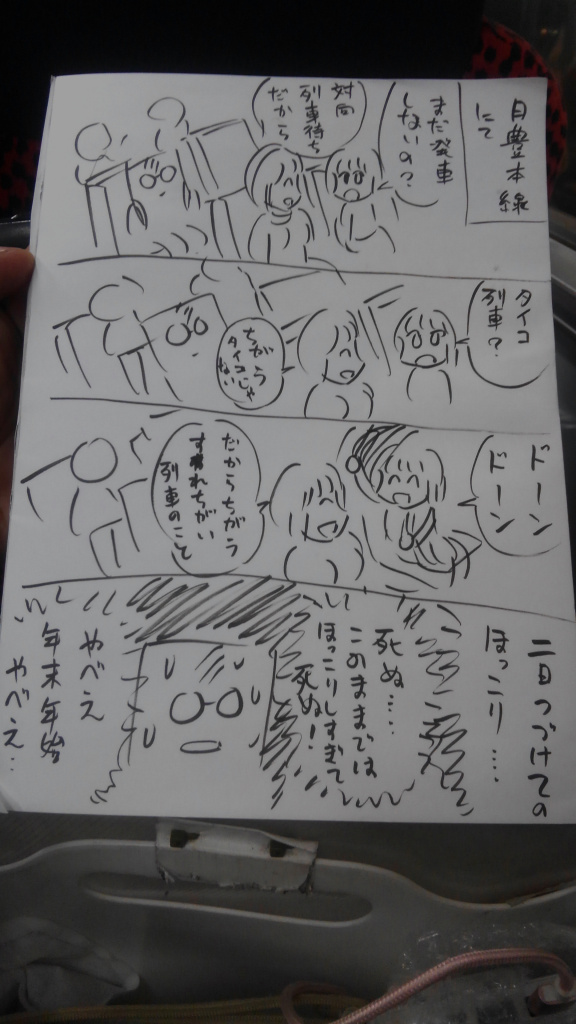 日豊本線
にて
まだ発車
しないの?
対向
列車待ち
だから
タイコ
列車?
ちがう
タイコじゃ
ない
ドーン
ドーン
だからちがう
すれちがい
列車のこと
二日つづけての
ほっこり‥‥
死ぬ‥‥
このままでは
ほっこりしすぎて
死ぬ!
やべえ
年末年始
やべえ‥